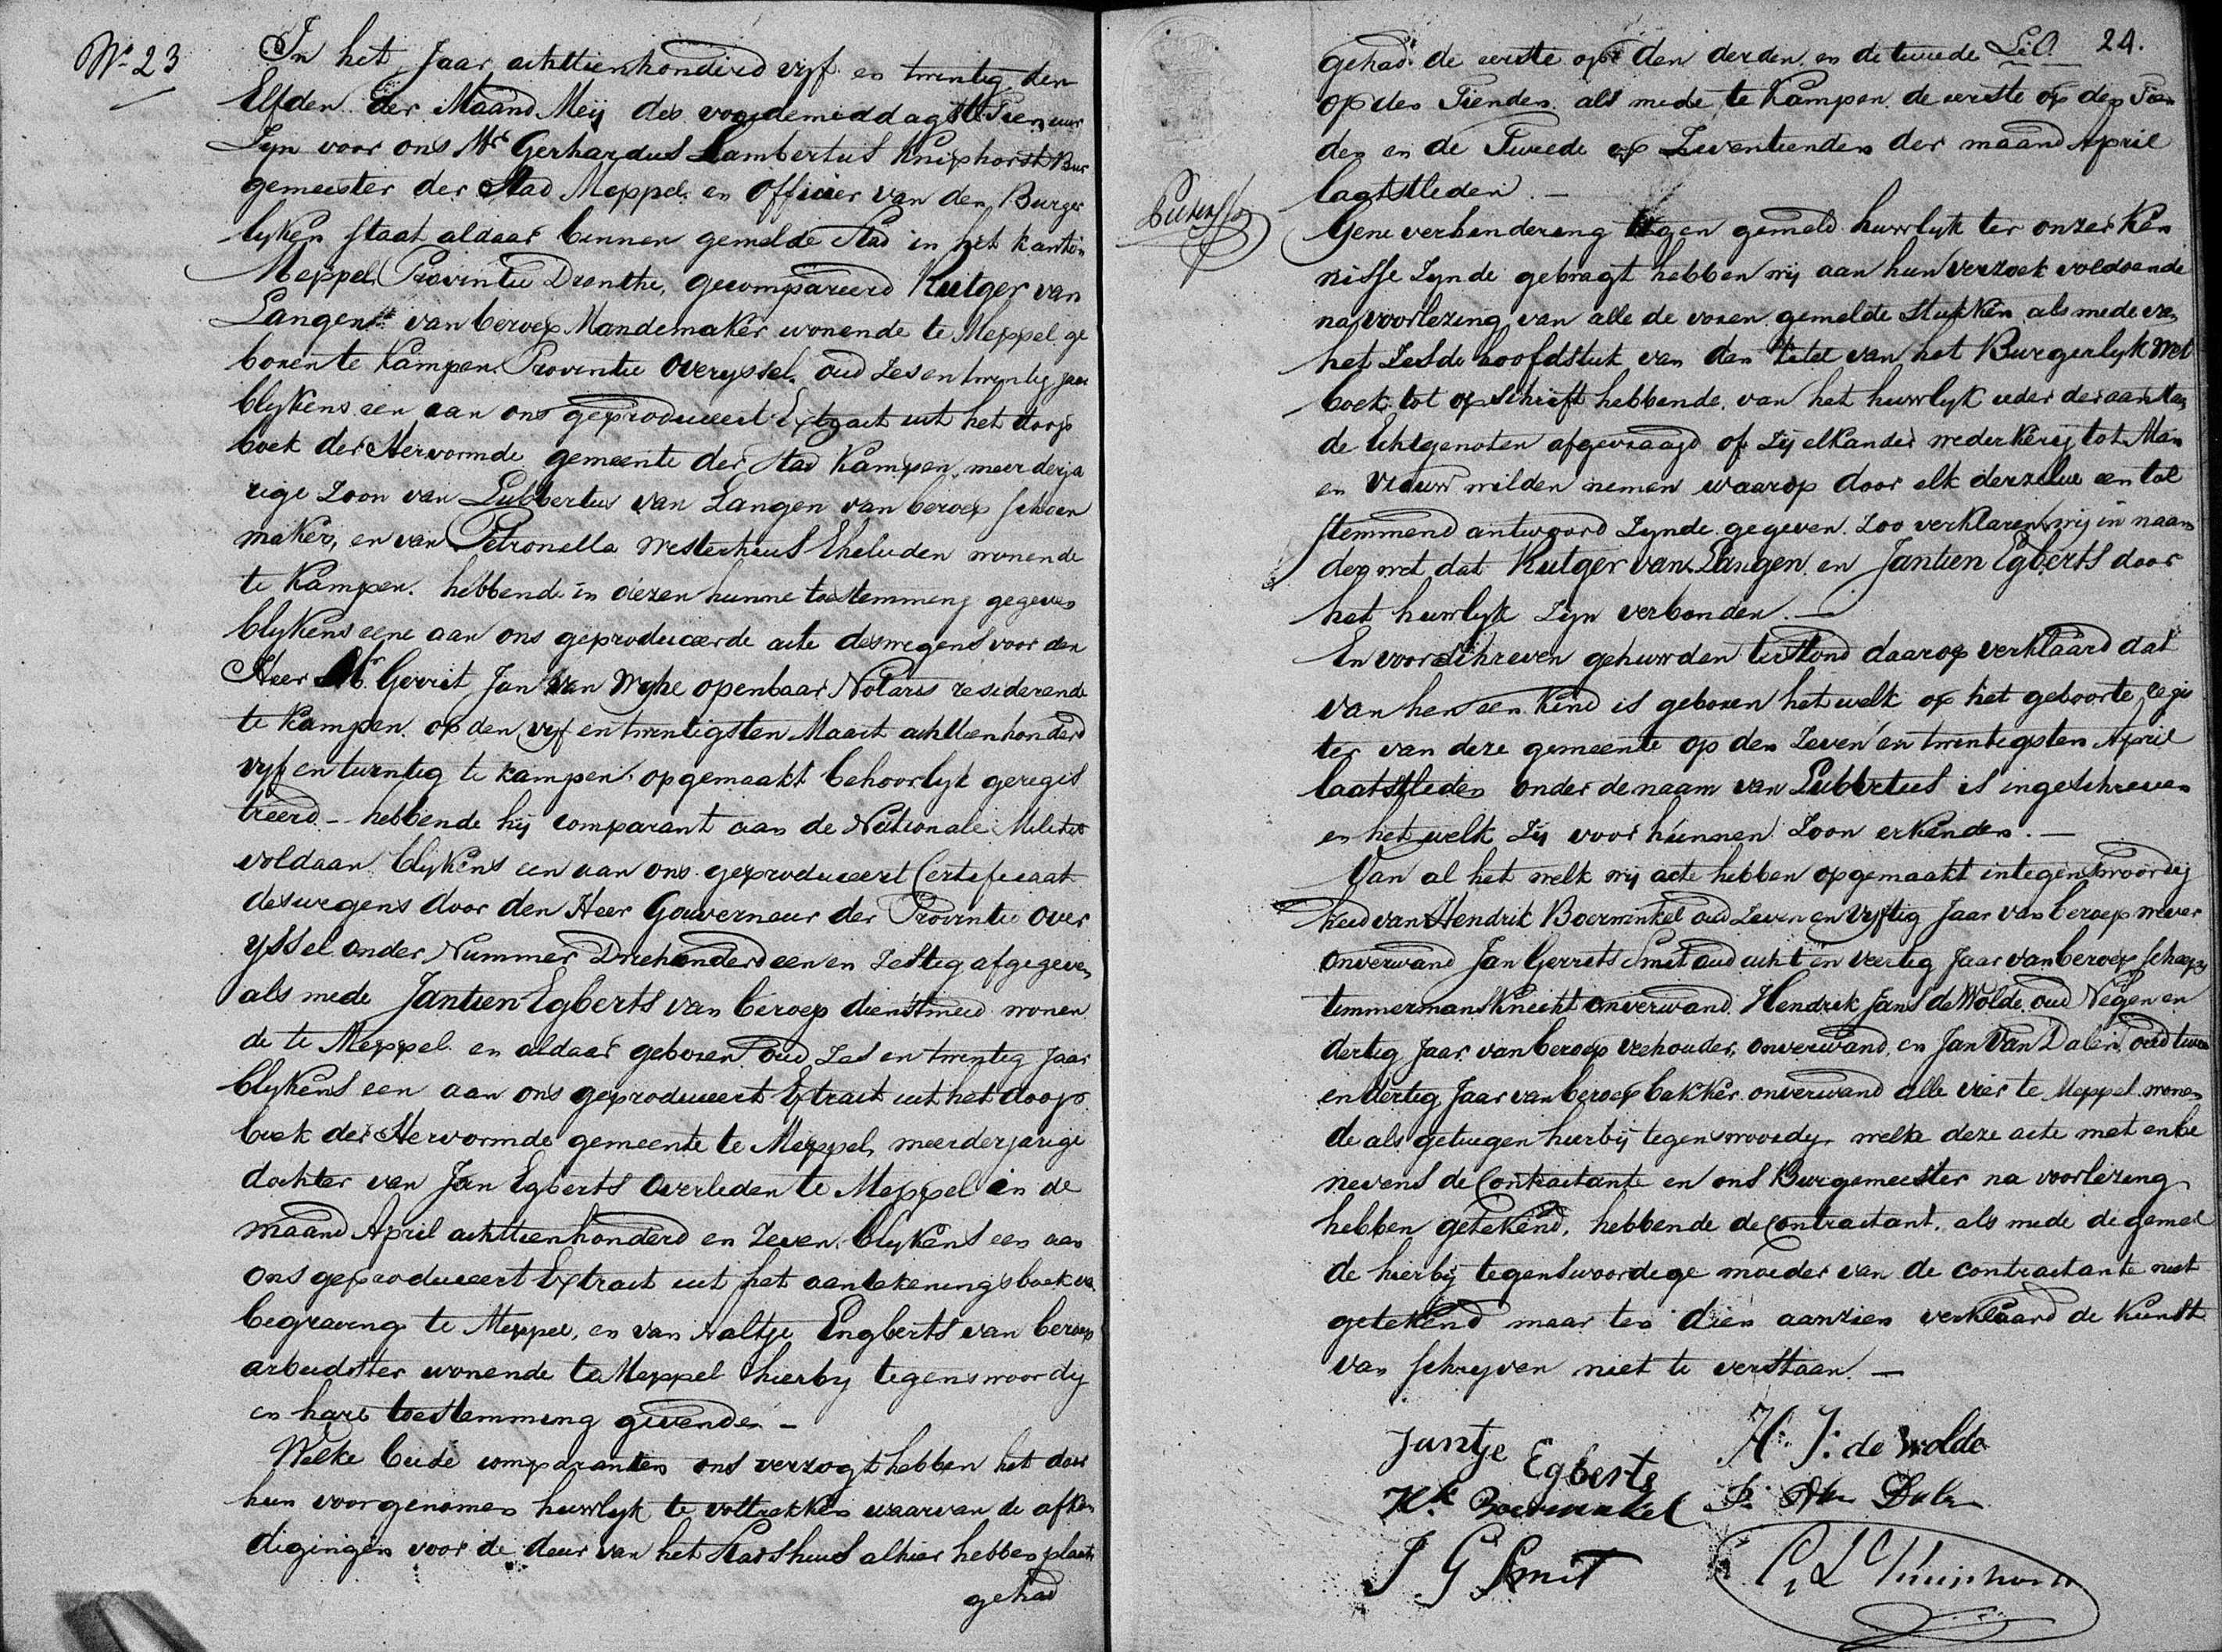 No 23
In het Jaar achttienhonderd vyf en twintig den
Elfden der Maand Meij des voordemiddags te Tien uur
Zyn voor ons Mr Gerhardus Lambertus Kniphorst Bur
gemeester der Stad Meppel en officier van den Burger
lyken staat aldaar binnen gemelde Stad in het kanton
Meppel Provintie Drenthe, gecompareerd Rutger van
Langen van beroep Mandemaker wonende te Meppel ge
boren te Kampen Provintie Overyssel oud Zes en twintig jaar
blykens een aan ons geproduceert Extract uit het doop
boek der Hervormde gemeente der Stad Kampen, meerderja
rige Zoon van Lubbertus van Langen van beroep schoen
maker, en van Petronella Westerhuis Ehelieden wonende
te Kampen. hebbende in dezen hunne toestemming gegeven
blykens eene aan ons geproduceerde acte deswegens voor den
Heer Mr. Gerrit Jan van Wyhe openbaar Notaris residerende
te Kampen op den vyf en twintigsten Maart achttienhonderd
vyf en twintig te kampen opgemaakt behoorlyk geregis
treerd – hebbende hy comparant aan de Nationale Militie
voldaan blykens een aan ons geproduceert Certificaat
deswegens door den Heer Gouverneur der Provintie Over
yssel onder Nummer Driehonderd een en Zestig afgegeven
als mede Jantien Egberts van beroep dienstmeid wonen
de te Meppel en aldaar geboren oud Zes en twintig Jaar
blykens een aan ons geproduceert Extract uit het doop
boek der Hervormde gemeente te Meppel, meerderjarige
dochter van Jan Egberts Overleden te Meppel in de
maand April achttienhonderd en Zeven blykens een aan
ons geproduceert Extract uit het aantekeningsboek van
begraving te Meppel, en van Aaltje Engberts van beroep
arbeidster wonende te Meppel hierby tegenswoordig
en hare toestemming gevende –
Welke beide comparanten ons verzogt hebben het door
hun voorgenomen huwlyk te voltrekken waarvan de afkon
digingen voor de deur van het Stadshuis alhier hebben plaats
gehad
24.
gehad de eerste op den derden en de tweede
op den Tienden als mede te Kampen de eerste op den Tien
den en de Tweede op Zeventienden der maand April
laatstleden. –
Gene verhindering tegen gemeld huwlyk ter onzer Ken
nisse Zynde gebragt hebben wy aan hun verzoek voldoende
na voorlezing van alle de voren gemelde Stukken als mede van
het Zesde hoofdstuk van den titel van het Burgerlyk Wet
boek tot opschrift hebbende van het huwlyk ieder der aanstaan
de Echtgenoten afgevraagd of Zy elkander wederkerig tot Man
en Vrouw wilden nemen waarop door elk derzelve een toe
stemmend antwoord Zynde gegeven. Zoo verklaren wy in naam
der wet dat Rutger van Langen en Jantien Egberts door
het huwlyk Zyn verbonden. –
En voorschreven gehuwden terstond daarop verklaard dat
van hen een Kind is geboren het welk op het geboorte regis
ter van deze gemeente op den Zeven en twintigsten April
laatstleden onder de naam van Lubbertus is ingeschreven
en het welk Zy voor hunnen Zoon erkenden. –
Van al het welk wy acte hebben opgemaakt in tegenswoordig
heid van Hendrik Boerwinkel oud Zeven en Vyftig Jaar van beroep wever
onverwand Jan Gerrits Smit oud acht en Veertig Jaar van beroep scheeps
timmermansknecht onverwand Hendrik Jans de Wolde oud Negen en
dertig Jaar van beroep veehouder, onverwand, en Jan Van Dalen oud twee
en dertig Jaar van beroep bakker onverwand alle vier te Meppel wonen
de als getuigen hierby tegenswoordig welke deze acte met en be
nevens de Contractante en ons Burgemeester na voorlezing
hebben getekend, hebbende de Contractant als mede de gemel
de hierby tegenswoordige moeder van de contractante niet
getekend maar ten dien aanzien verklaard de Kunst
van schryven niet te verstaen. –
Jantje Egberts
H. J. de Wolde
Hk Boerwinkel
J. Van Dalen
J G Smit